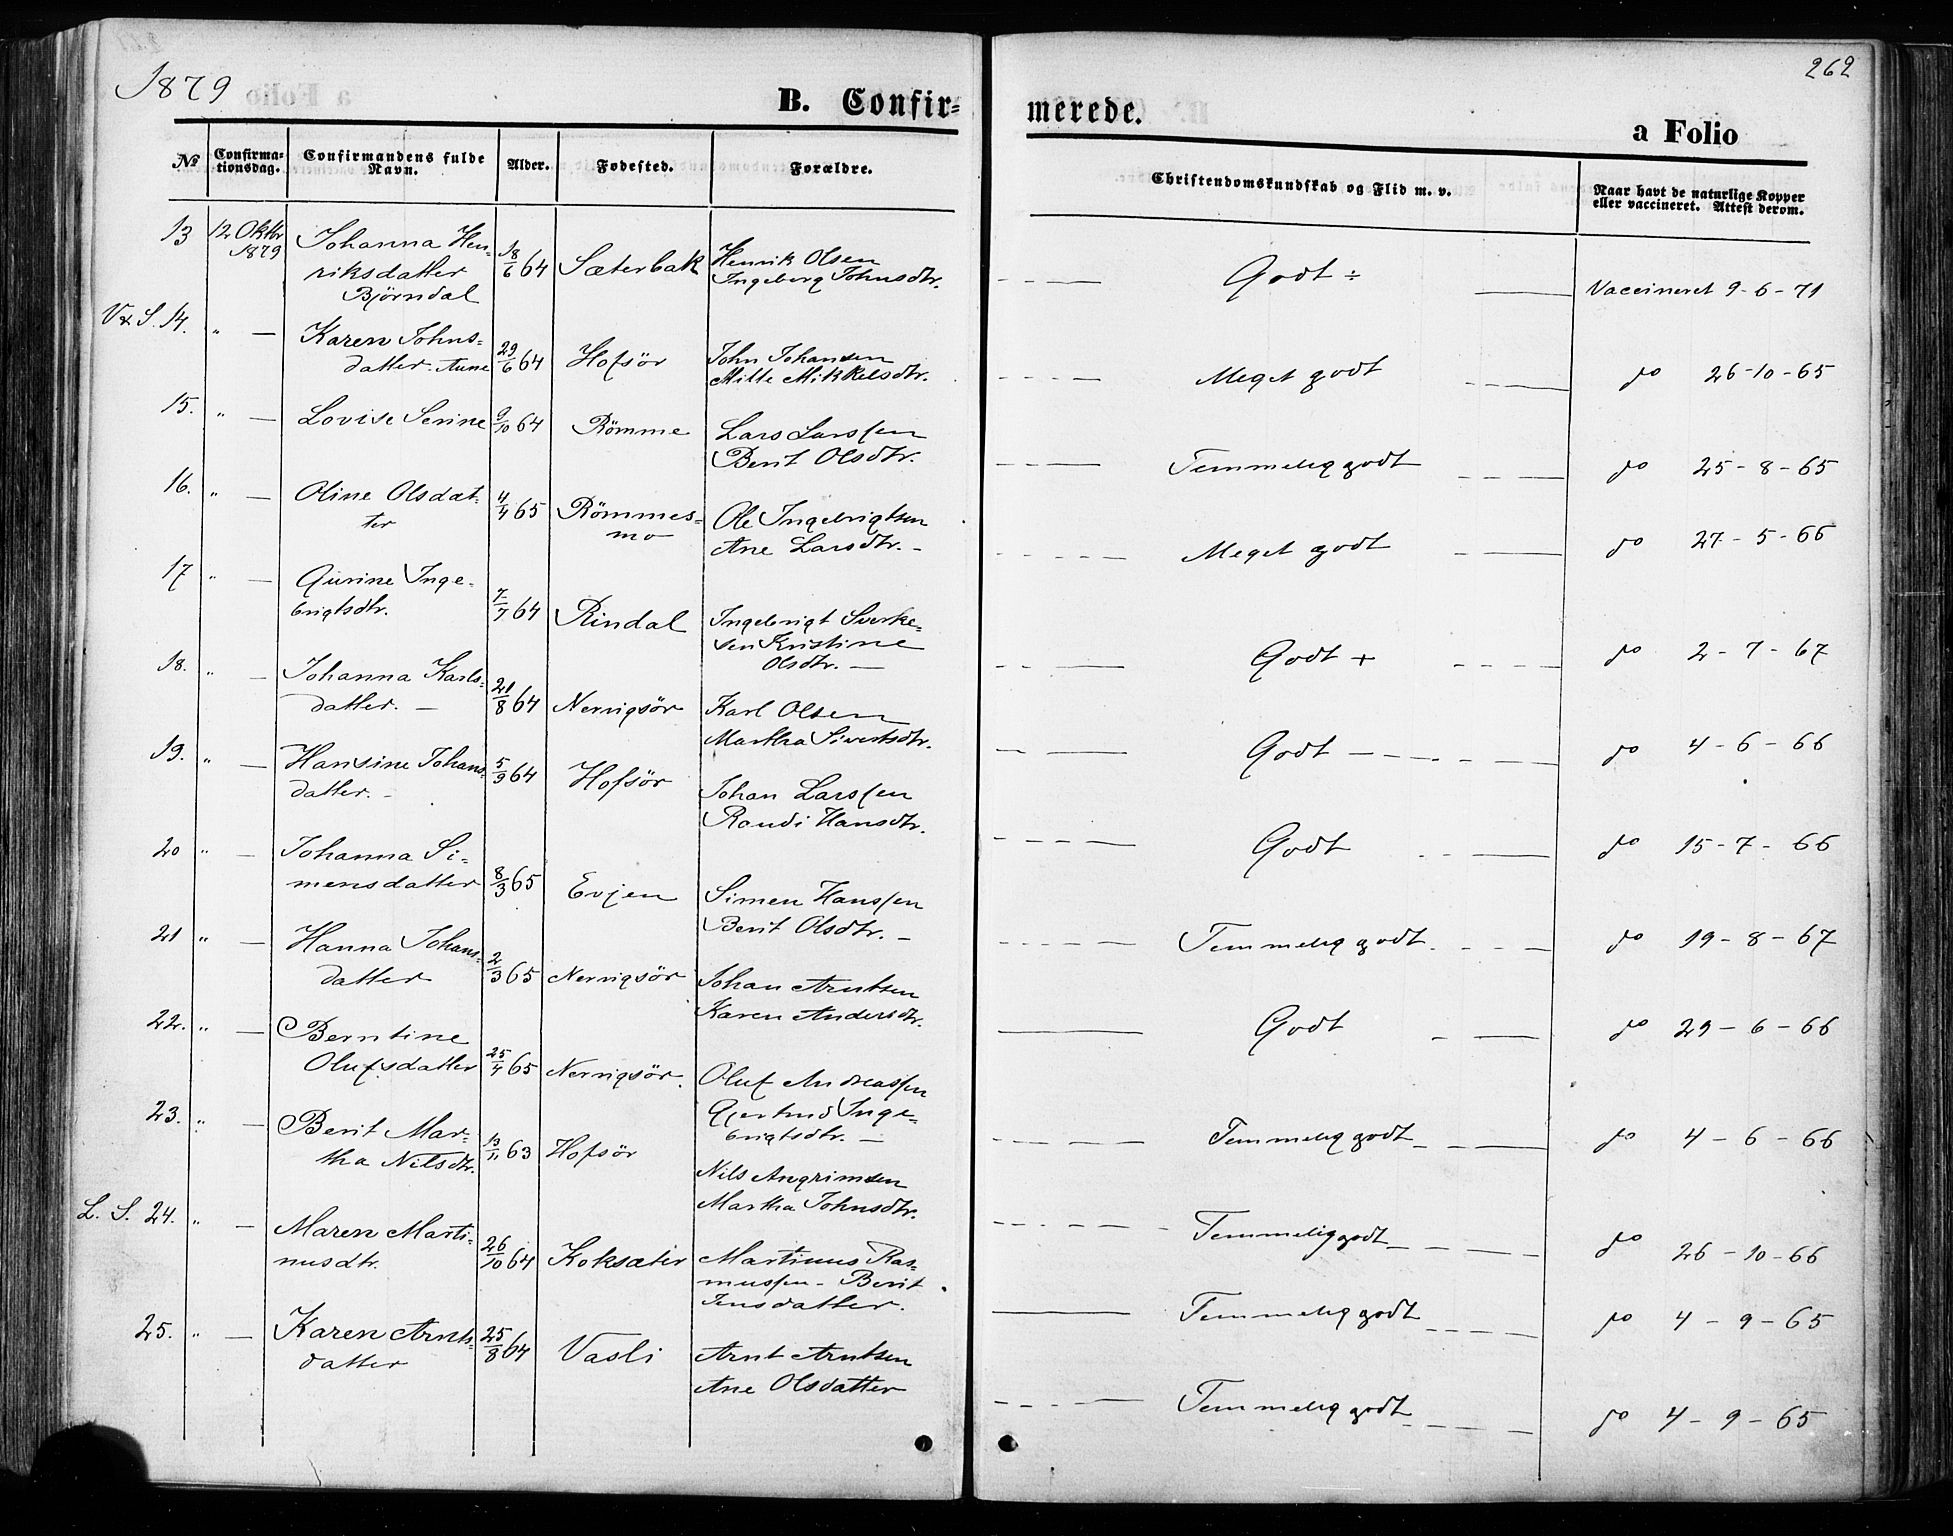 1879
262
B. Confir-
merede.
a Folio
No
Confirma-
tionsdag.
Confirmandens fulde
Navn.
Alder.
Fødested.
Forældre.
Christendomskundskab og Flid m. v.
Naar havt de naturlige Kopper
eller vaccineret. Attest derom.
13 12 Oktbr 1879 Johanna Hen-
riksdatter
Björndal
18/6 64 Sæterbak Henrik Olsen
Ingeborg Johnsdtr.
Godt ÷ Vaccineret 9-6-71
V & S. 14. " — Karen Johns-
datter Aune
29/6 64 Hofsör John Johansen
Mille Mikkelsdtr.
Meget godt do 26-10-65
15. " — Lovise Serine 9/10 64 Römme Lars Larssen
Berit Olsdtr.
Temmelig godt do 25-8-65
16. " — Oline Olsdat-
ter
4/4 65 Römmes-
mo
Ole Ingebrigtsen
Ane Larsdtr. -
Meget godt do 27-5-66
17 " — Gurine Inge-
brigtsdtr.
7/7 64 Rindal Ingebrigt Sverke-
sen Kristine
Olsdtr. —
Godt + do 2-7-67
18. " — Johanna Karls-
datter. —
21/8 64 Nerrigsör Karl Olsen
Martha Sivertsdtr.
Godt do 4-6-66
19. " — Hansine Johans-
datter. -
5/9 64 Hofsör Johan Larssen
Randi Hansdtr.
Godt do 15-7-66
20 " — Johanna Si-
mensdatter
8/3 65 Evjen Simen Hanssen
Berit Olsdtr. -
Temmelig godt do 19-8-67
21 " — Hanna Johans-
datter
2/3 65 Nerrigsör Johan Arntsen
Karen Andersdtr.
Godt do 29-6-66
22. " — Berntine
Olufsdatter
25/4 65 Nerrigsör. Oluf Andreassen
Gjertrud Inge-
brigtsdtr. —
Temmelig godt do 4-6-66
23. " — Berit Mar-
tha Nilsdtr.
13/11 63 Hofsör Nils Angrimsen
Martha Johnsdtr.
Temmelig godt do 26-10-66
L. S. 24. " — Maren Marti-
nusdtr.
26/10 64 Koksæter Martinus Ras-
mussen - Berit
Jensdatter.
Temmelig godt do 4-9-65
25. " — Karen Arnts-
datter
25/8 64 Vasli Arnt Arntsen
Ane Olsdatter
Temmelig godt do 4-9-65